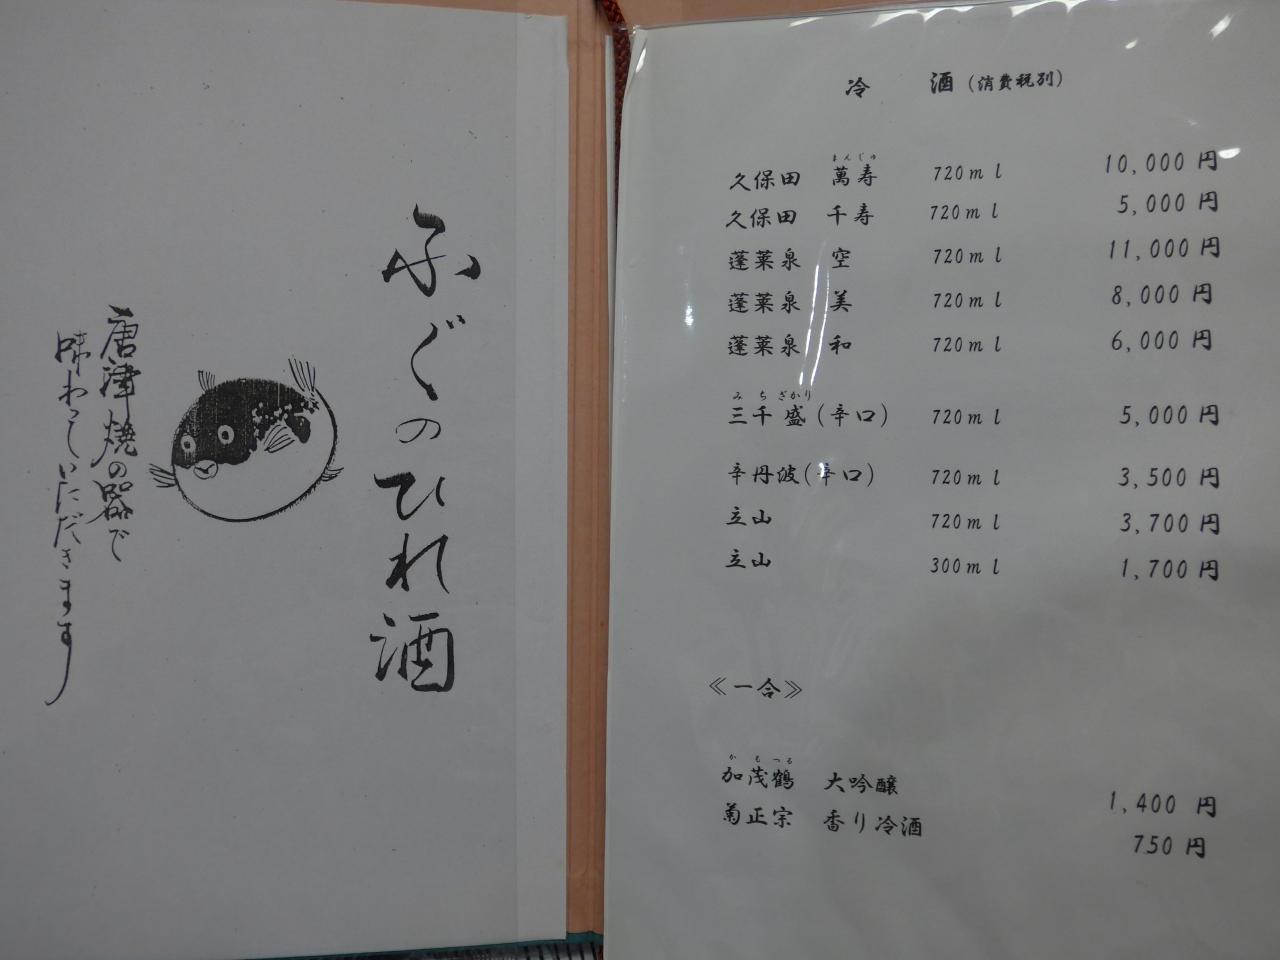 ふぐのひれ酒
唐津焼の器で
味わっていただきます
冷 酒 (消費税別)
まんじゅ
久保田 萬寿 720ml 10,000円
久保田 千寿 720ml 5,000円
蓬莱泉 空 720ml 11,000円
蓬莱泉 美 720ml 8,000円
蓬莱泉 和 720ml 6,000円
みちざかり
三千盛(辛口) 720ml 5,000円
辛丹波(辛口) 720ml 3,500円
立山 720ml 3,700円
立山 300ml 1,700円
≪一合≫
かもつる
加茂鶴 大吟醸 1,400円
菊正宗 香り冷酒 750円